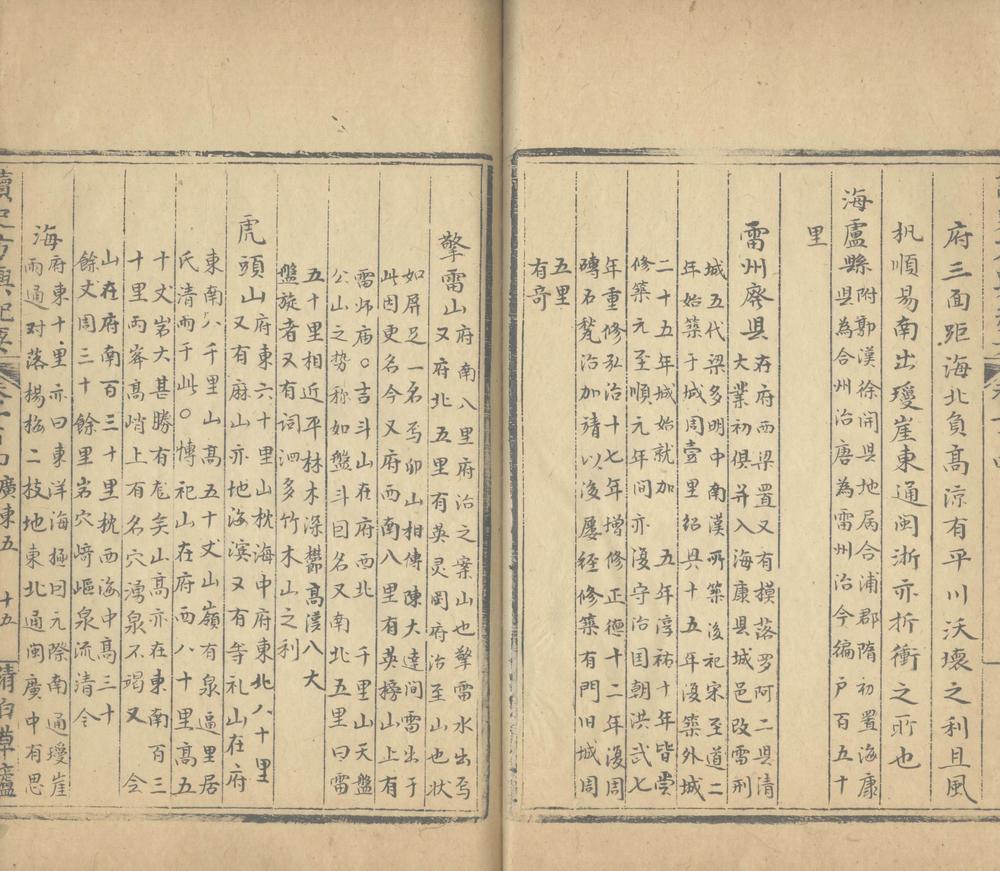 府三面距海北負高涼有平川沃壤之利且風
杋順易南出瓊崖東通閩浙亦折衝之所也
海盧縣附郭漢徐開县地屬合浦郡隋初置海康
县為合州治唐為雷州治今編户百五十
里
雷州廃县在府西梁置又有摸落罗阿二县清
大業初俱并入海康县城邑改雷刑
城五代梁多明中南漢所築後祀宋至道二
年始築于城周壹里紹兴十五年復築外城
二十五年城始就加五年淳祐十年皆嘗
修築元至順元年间亦復守治国朝洪武七
年重修弘治十七年增修正德十二年復周
磚石甃治加靖以後屡经修築有門旧城周
五里
有奇
擎雷山府南八里府治之案山也擎雷水出焉
又府北五里有英灵岡府治至山也状
如屏足一名焉卯山相傳陳大達间雷出于
此因更名今又府西南八里有英榜山上有
雷师庙○吉斗山在府西北千里山天盤
公山之势称如盤斗曰名又南北五里曰雷
五十里相近平林木深欝高淺八大
盤旋者又有词泗多竹木山之利
虎頭山府東六十里山枕海中府東北八十里
又有麻山亦地海濱又有等礼山在府
東南八千里山高五十丈山嶺有泉逼里居
氏清而于此○愽祀山在府西八十里高五
十丈岩大甚勝有尨矣山高亦在東南百三
十里两峯髙峭上有名穴湧泉不竭又今
山在府南百三十里枕西海中高三十
餘丈周三十餘里岩穴崎嶇泉流清今
海府東十里亦曰東洋海極曰元際南通瓊崖
雨通对落楊梅二技地東北通闽廣中有思
廣東五 十五